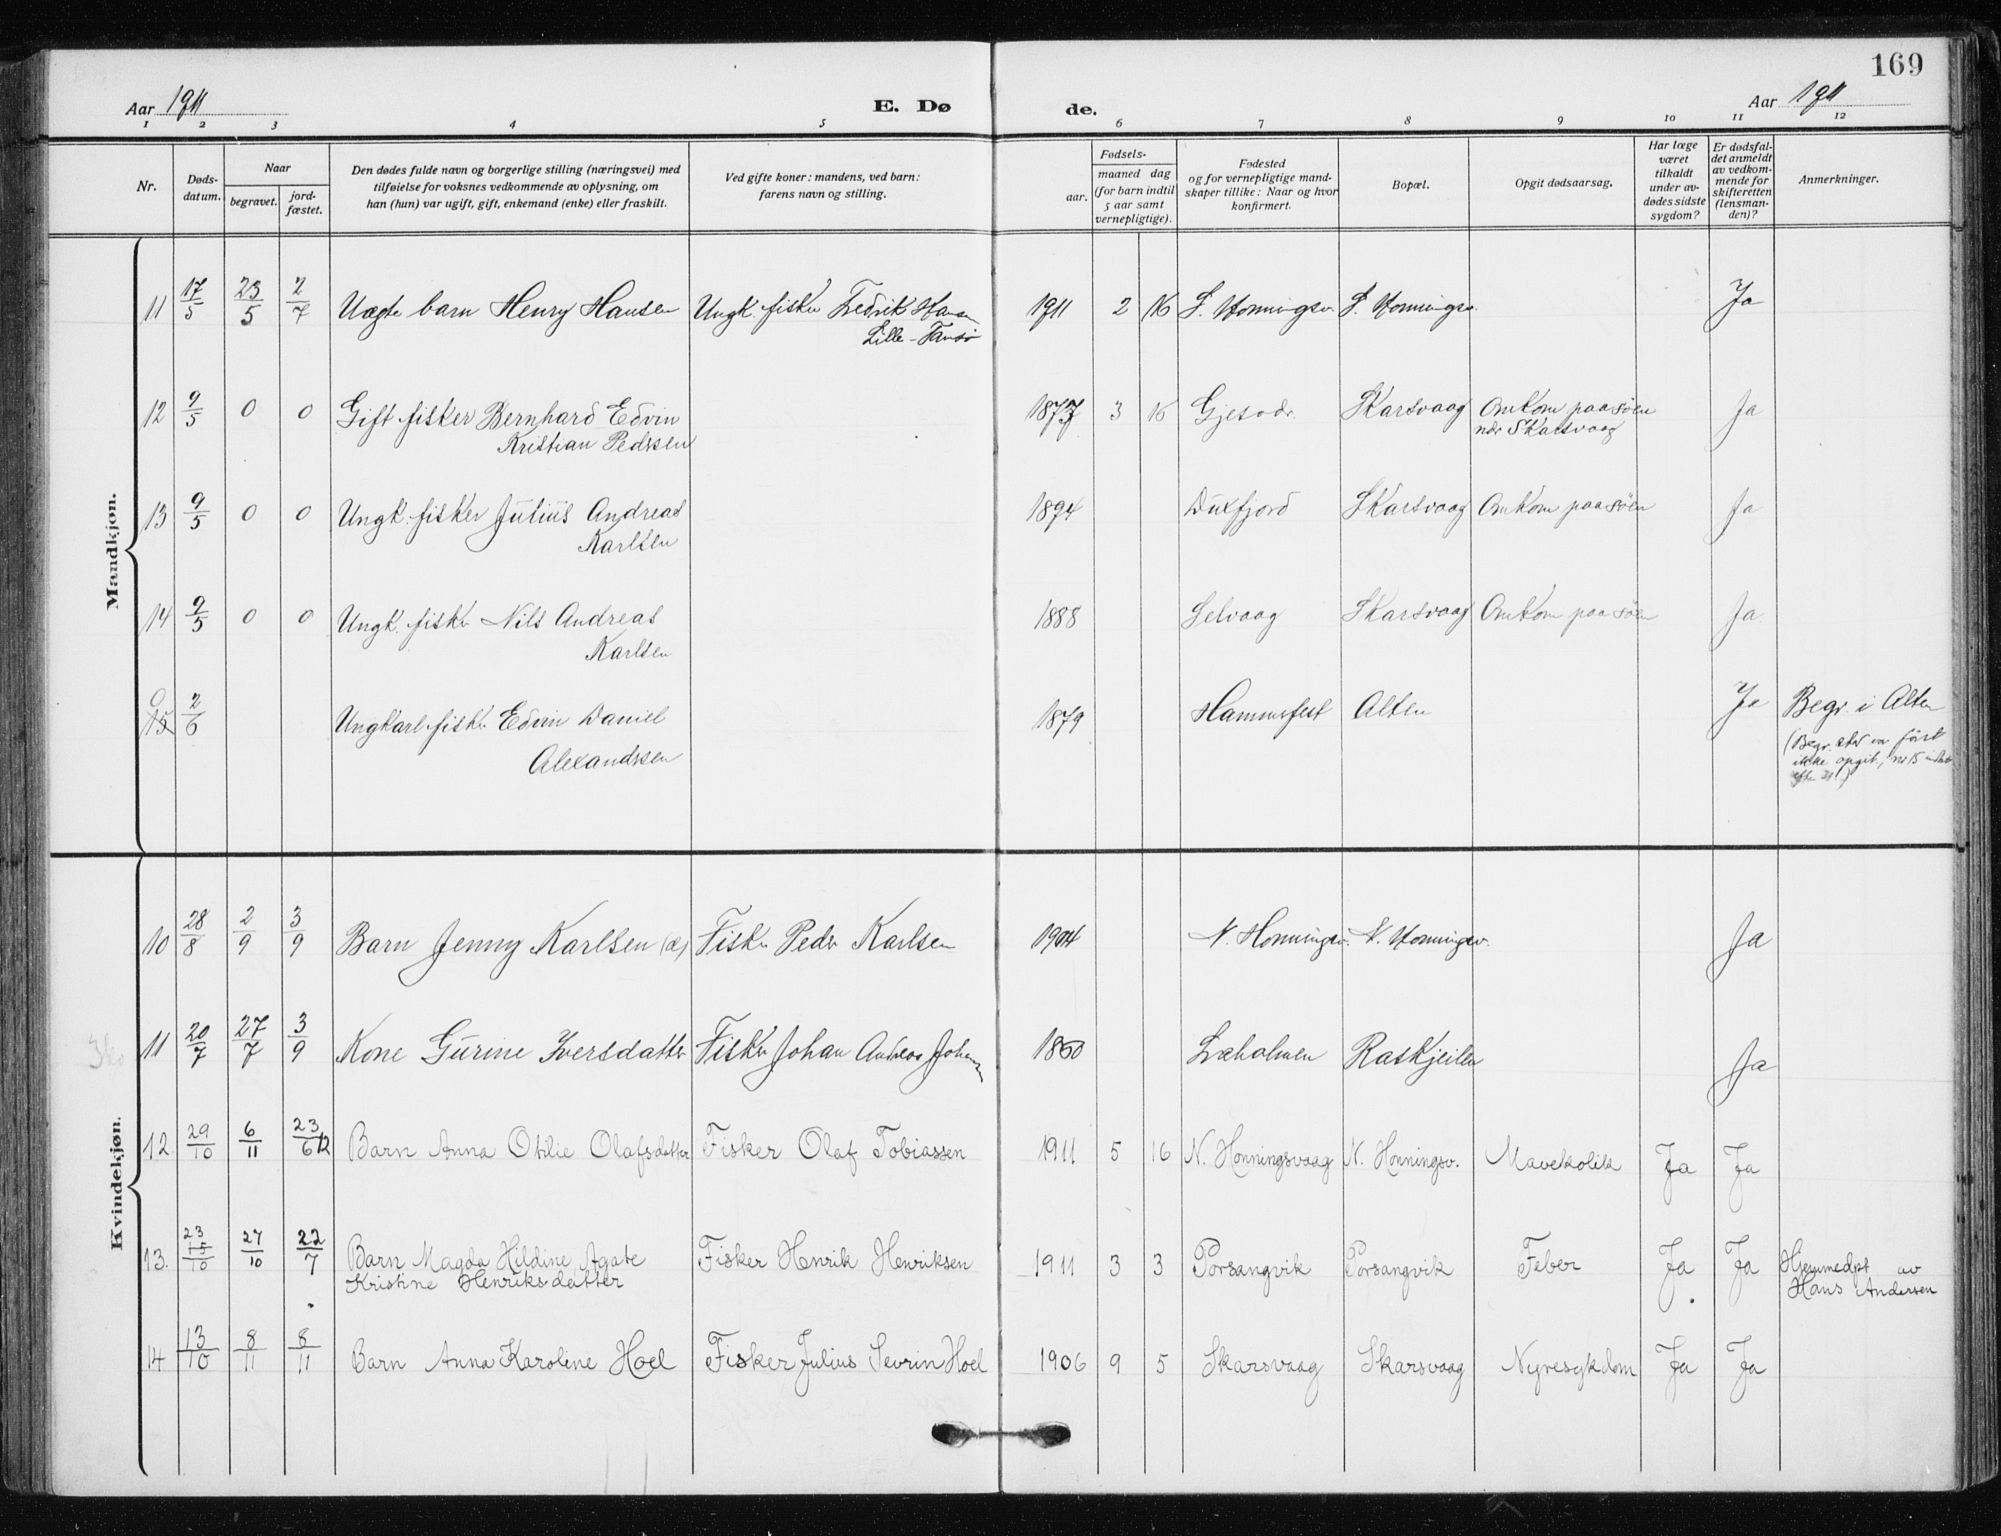 169
Aar 1911
E. Dø
de.
Aar 1911
1 2 3 4 5 6 7 8 9 10 11 12
Nr.
Døds-
datum.
Naar
begravet.
jord-
fæstet.
Den dødes fulde navn og borgerlige stilling (næringsvei) med
tilføielse for voksnes vedkommende av oplysning, om
han (hun) var ugift, gift, enkemand (enke) eller fraskilt.
Ved gifte koner: mandens, ved barn:
farens navn og stilling.
Fødsels-
aar.
maaned dag
(for barn indtil
5 aar samt
vernepligtige).
Fødested
og for vernepligtige mand-
skaper tillike: Naar og hvor
konfirmert.
Bopæl.
Opgit dødsaarsag.
Har læge
været
tilkaldt
under av-
dødes sidste
sygdom?
Er dødsfal-
det anmeldt
av vedkom-
mende for
skifteretten
(lensman-
den)?
Anmerkninger.
Mandkjøn.
11 17/5 23/5 2/7 Uægte barn Henry Hansen Ungk. fisker Fedrik Hansen 1911 2 16 S. Honningsv. S. Honningsv. Ja
Lille-Tamsø
12 9/5 0 0 Gift fisker Bernhard Edvin 1873 3 16 Gjesvær. Skarsvaag Omkom paa søen Ja
Kristian Pedersen nær Skarsvaag
13 9/5 0 0 Ungk. fisker Julius Andreas 1894 Duxfjord Skarsvaag Omkom paa søen Ja
Karlsen
14 9/5 0 0 Ungk. fisker Nils Andreas 1888 Selvaag Skarsvaag Omkom paa søen Ja
Karlsen
0
15 2/6 Ungkarl fisker Edvin Daniel 1879 Hammerfest Alten Ja Begr. i Alten
Alexandersen (Begr. sted var først
ikke opgit, nr 15
Kvindekjøn.
10 28/8 2/9 3/9 Barn Jenny Karlsen (æ) Fisker Peder Karlsen 1904 N. Honningsv. N. Honningsv. Ja
11 20/7 27/7 3/9 Kone Gurine Iversdatter Fisker Johan Andreas Johansen 1850 Læholmen Raskjeilen Ja
12 29/10 6/11 23/12 Barn Anna Otilie Olafsdatter Fisker Olaf Tobiassen 1911 5 16 N. Honningsvaag N. Honningsv. Mavekolik Ja Ja
13. 23/10 27/10 22/7 Barn Magda Hildine Agate Fisker Henrik Henriksen 1911 3 3 Porsangvik Porsangvik Feber Ja Ja Hjemmedpt av
Kristine Henriksdatter Hans Andersen
14 13/10 8/11 8/11 Barn Anna Karoline Hoel Fisker Julius Sevrin Hoel 1906 9 5 Skarsvaag Skarsvaag Nyresykdom Ja Ja